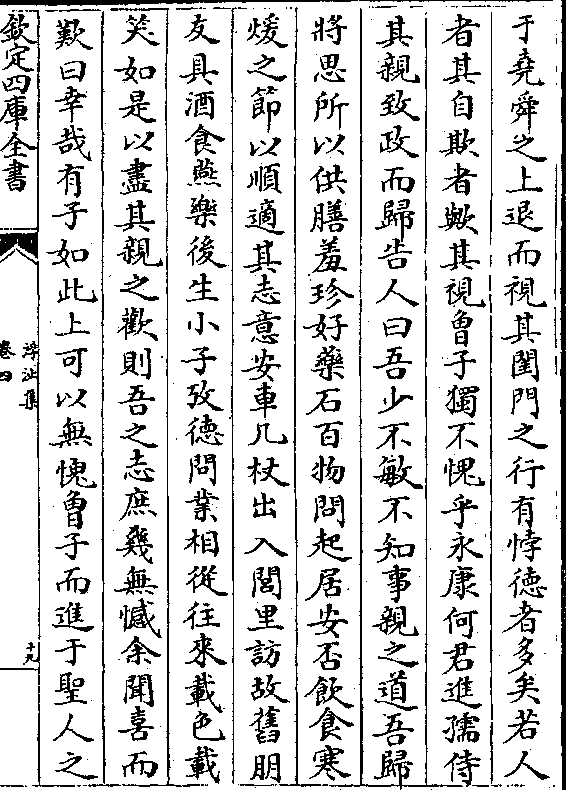 于堯舜之上退而視其閨門之行有悖徳者多矣若人
者其自欺者歟其視曾子獨不愧乎永康何君進孺侍
其親致政而歸告人曰吾少不敏不知事親之道吾歸
將思所以供膳羞珍好藥石百物問起居安否飲食寒
煖之節以順適其志意安車几杖出入閭里訪故舊朋
友具酒食燕樂後生小子攷徳問業相從往來載色載
笑如是以盡其親之歡則吾之志庶幾無憾余聞喜而
歎曰幸哉有子如此上可以無愧曾子而進于聖人之
欽定四庫全書
浮沚集
卷四
十九